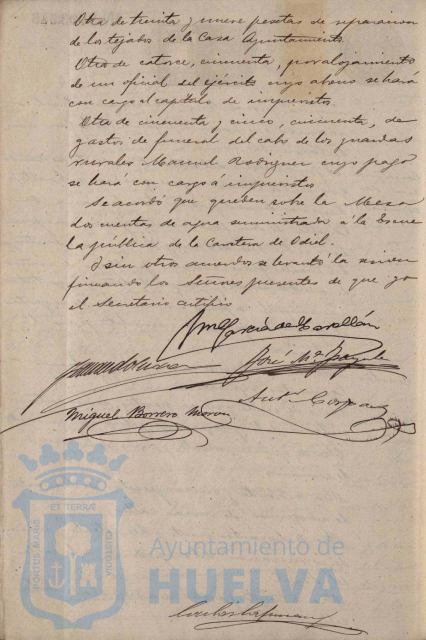 Otra de treinta y nueve pesetas de reparacion
de los tejados de la Casa Ayuntamiento.
Otro de catorce, cincuenta, por alojamiento
de un oficial del ejército cuyo abono se hará
con cargo al capitulo de imprevistos.
Otra de cincuenta y cinco, cincuenta, de
gastos de funeral del cabo de los guardas
rurales Manuel Rodriguez cuyo pago
se hará con cargo á imprevistos
Se acordó que queden sobre la Mesa
dos cuentas de agua suministrada á la Escue
la pública de la Carretera de Odiel.
Y sin otros acuerdos se levantó la sesion
firmando los Señores presentes de que yo
el Secretario certifico
García de
José Mª
Antº
Miguel Borrero Moron
ET TERRAE
PORTUS MARIS
CUSTODIA
Ayuntamiento de
HUELVA